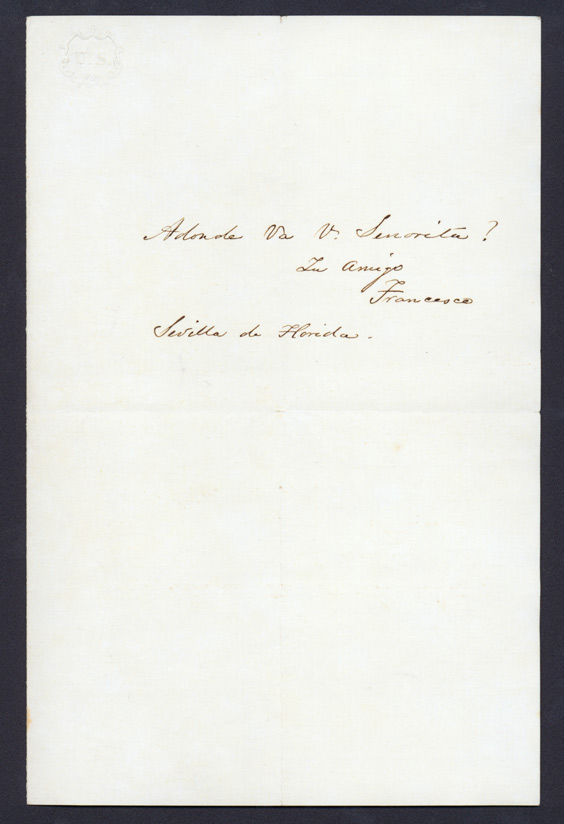 U.S.
Adonde va V. Senorita?
Tu amigo
Francesco
Sevilla de Florida.